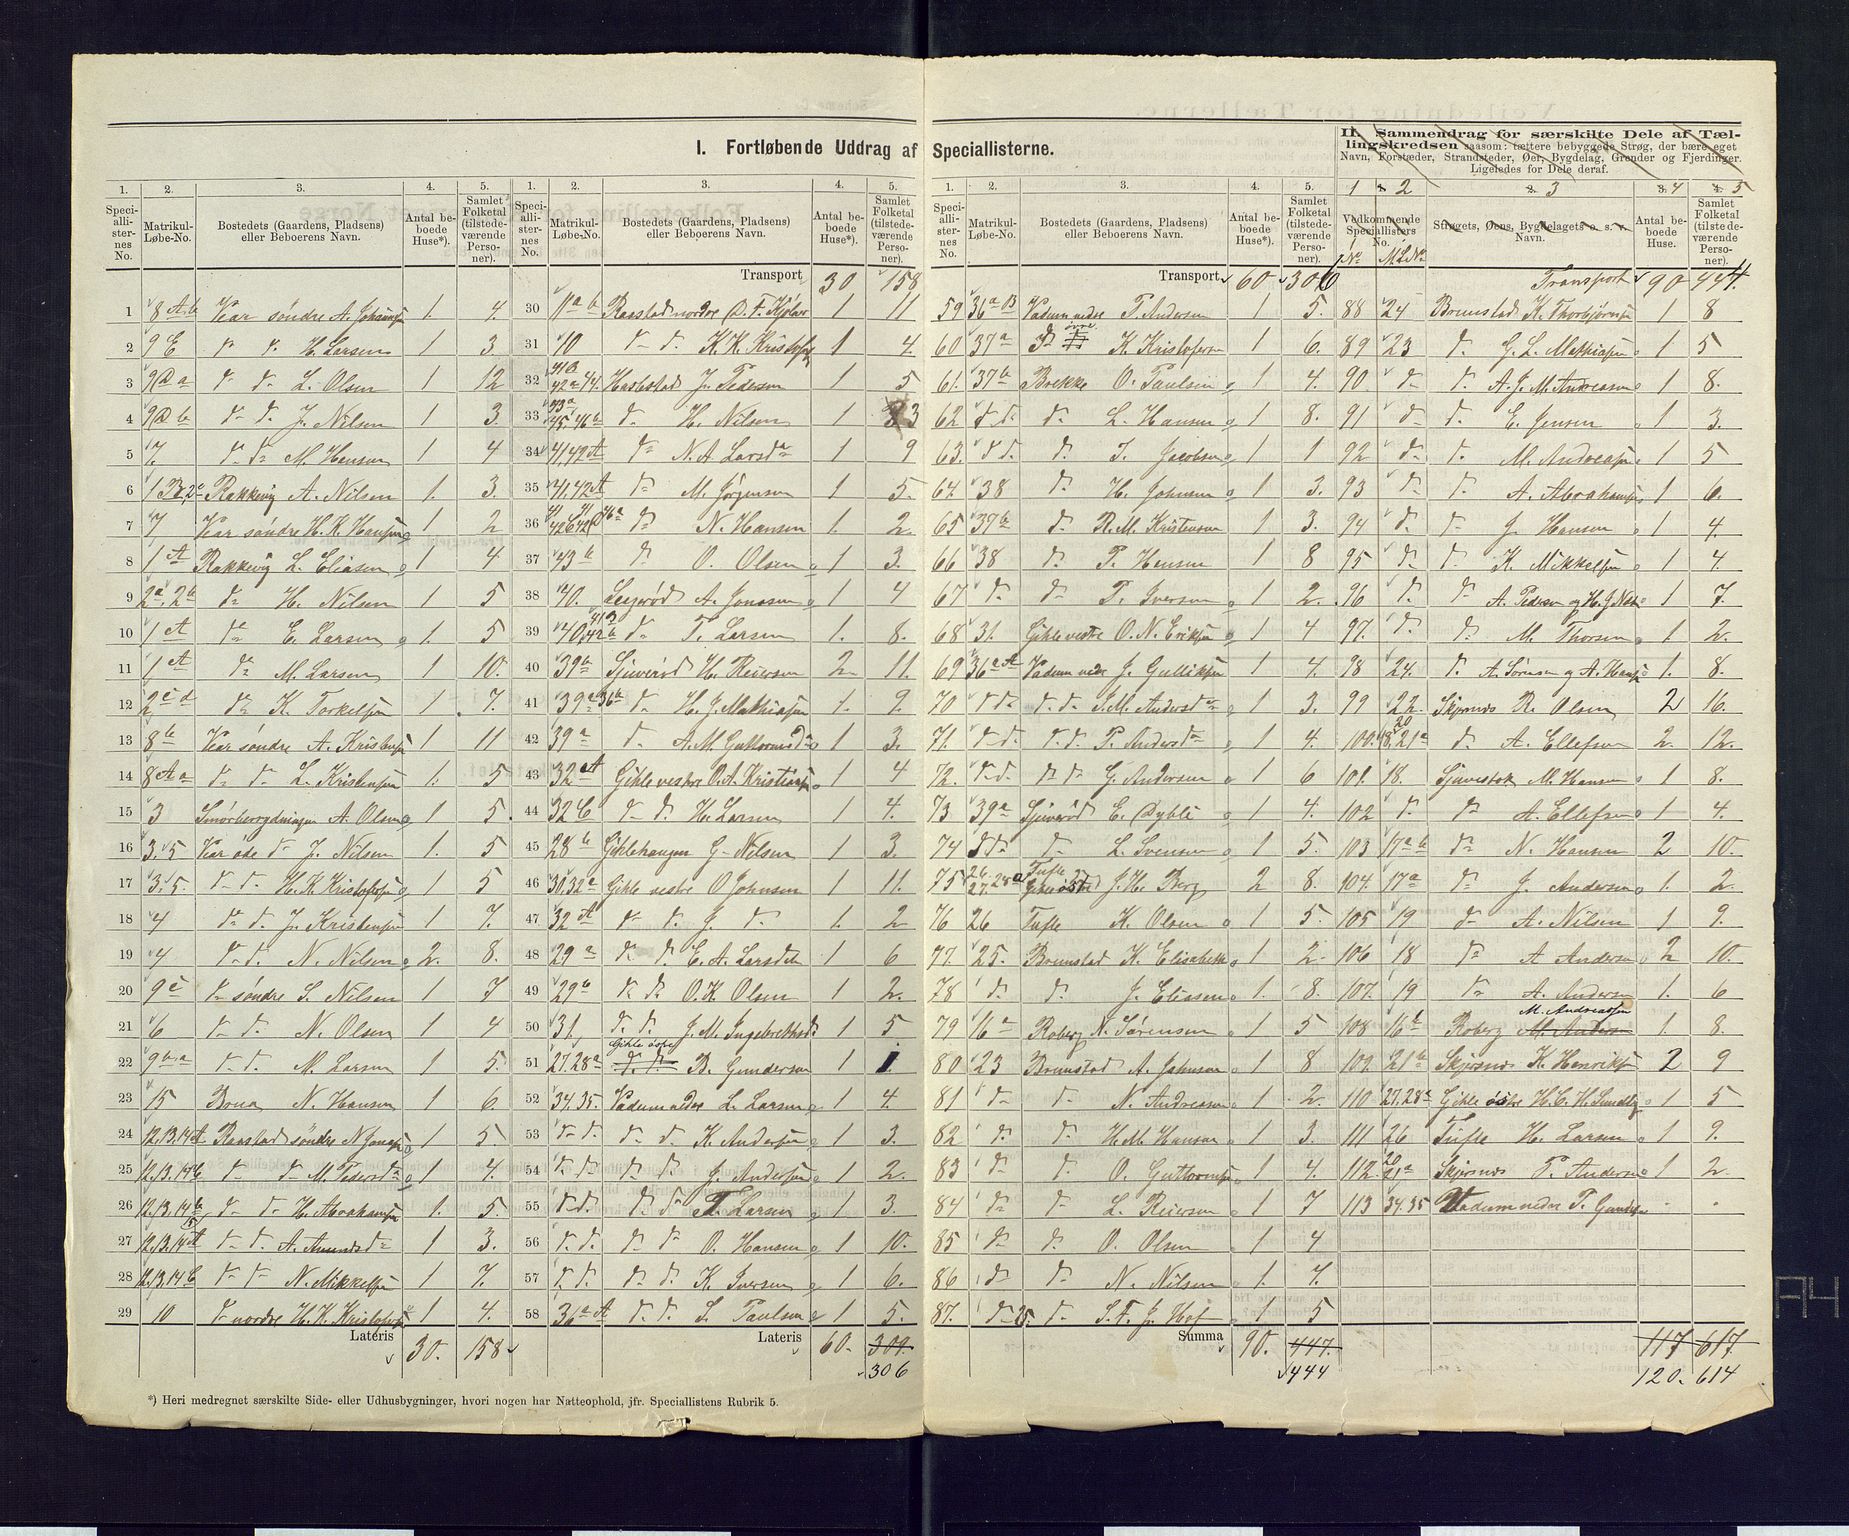 I. Fortløbende Uddrag af Speciallisterne.
II. Sammendrag for særskilte Dele af Tællingskredsen saasom: tættere bebyggede Strøg, der bære eget
Navn, Forstæder, Strandsteder, Øer, Bygdelag, Grender og Fjerdinger.
Ligeledes for Dele deraf.
1. 2. 3. 4. 5. 1. 2. 3. 4. 5.
Speciallisternes No. Matrikul-Løbe-No. Bostedets (Gaardens, Pladsens) eller Beboerens Navn. Antal beboede Huse*). Samlet Folketal (tilstedeværende Personer).
Transport 30 158
1 8 A.b Vear søndre A. Johansen 1 4
2 9 E d d. H. Larsen 1 3.
3 9 D a d d. L. Olsen 1 12
4 9 D b d d. J. Nilsen 1 3.
5 7. d. d. M. Hansen 1 4
6 Rakkevig A. Nilsen 1. 3.
7 7 Vear søndre H. K. Hansen 1. 2
8 1 A Rakkevig L. Eliasen 1 4
9 2a. 2b d. H. Nilsen 1 5
10 1 A d. E. Larsen 1. 5
11 1 A d. M. Larsen 1 10.
12 2 c d d. K. Torkelsen 1 7.
13 8 b Vear søndre A. Kristensen 1 11
14 8 A a d. d. L. Kristensen 1. 5
15 3 A. Olsen 1 5.
16 3. 5 J. Nilsen 1. 5
17 3. 5. d. d. H. K. Kristofersen 1 5
18 4 d. d. J. Kristensen 1 7.
19 4 d. d. N. Nilsen 2. 8.
20 9 c d søndre S. Nilsen 1 7
21 6 d. d. N. Olsen 1 4
22 d. d. M. Larsen 1 5.
23 15 Brua N. Hansen 1 6.
24 12. 13. 14 A Raastad søndre N. Jonassen 1 5.
25 12. 13. 14 d. d. M. Pedersd. 1 4.
26 12. 13. 14 b d. d. H. Abrahamsen 1. 5.
27 12. 13. 14 A d. d. A. Amundsd. 1 3.
28 12. 13. 14 d. d. N. Mikkelsen 1 7.
29 10 d. nordre H. K. Kristofersen 1 4.
Lateris 30. 158
30 11 a b Raastad nordre O. F. Kjølner 1 11
31 10 d. d. K. K. Kristofersen 1 4.
32 J. Pedersen 1 5
33 d. H. Nilsen 1 3
34 41, 42 A d. N. A Larsd. 1 9
35 41. 42 A d. M. Jørgensen 1 5.
36 d. N. Hansen 1. 2.
37 43 b d. O. Olsen 1 3.
38 40. A. Jonassen 1 4
39 d. T. Larsen 1. 8.
40 39 b Sjuerød H. Reiersen 2. 11.
41 39 a 36 b d. H. J. Mathiasen 1. 9.
42 39 a d. A. M. Guttormsd. 1 3.
43 32 A Gihle vestre O. A. Kristiansen 1 4
44 32 C d. d. H. Larsen 1 4.
45 28 b Gihlehaugen G. Nilsen 1 3.
46 30. 32 a Gihle vestre O Johnsen 1 11.
47 32 A d. d. J. d. 1. 2
48 29 a d. d. E. A. Larsdt 1 6
49 29 b d. d. O. K. Olsen 1 2.
50 31. d. d. J. M. Ingebrethsd. 1 5.
51 27. 28 a Gihle østre d. d. B. Gundersen 1 1.
52 34. 35. Vadum nedre L. Larsen 1 4.
53 d. d. d. d. K. Andersen 1 3.
54 d. d. d. d. J. Andersen 1 2.
55 d. d. d. d. Larsen 1 3.
56 d. d. d. d. O. Hansen 1 10.
57 d. d. d. d. K. Iversen 1 6.
58 36 a A d. d. L. Paulsen 1 5.
Lateris 60. 309.
306
*) Heri medregnet særskilte Side- eller Udhusbygninger, hvori nogen har Natteophold, jfr. Speciallistens Rubrik 5.
1. 2. 3. 4. 5. 1 2 3 4 5
Speciallisternes No. Matrikul-Løbe-No. Bostedets (Gaardens, Pladsens) eller Beboerens Navn. Antal beboede Huse*). Samlet Folketal (tilstedeværende Personer).
Vedkommende Speciallisters No. Strøgets, Øens, Bygdelagets o. s. v. Navn. Antal beboede Huse. Samlet Folketal (tilstedeværende Personer).
No. M.L.No.
Transport 60 306
59 36 a B Vadum nedre T. Andersen 1 5.
60 37 a d. øvre K. Kristofersen 1 6.
61. 37 b Brekke O. Paulsen 1 4.
62 d d. d. L. Hansen 1 8.
63. d d. d. I. Jacobsen 1 1
64. 38 d. H. Johnsen 1 3.
65 37 b d. R. M. Kristensen 1 3.
66 38 d. P. Hansen 1 8
67 d. d. T. Iversen 1 2.
68 31. Gihle vestre O. N. Eriksen 1 4
69 36 a A Vadum nedr J. Gulliksen 1 4.
70 d d. d. d. S. M. Andersd. 1 3.
71. d. d. d. d. P. Andersd. 1 4.
72. d. d. d. d. G. Andersen 1 6
73 39 a Sjuerød E. Dybli 1 4.
74 d d. d L. Svensen 1 5.
75 26. 27. 28 a Tufte Gihle østre J. H. Berg 2 8.
76 26 Tufte K. Olsen 1 5.
77. 25. Brunstad K. Elisabeth 1 2.
78 d. d. J. Eliasen 1. 8.
79 16 a Roberg N. Sørensen 1 5
80 23 Brunstad A. Johnsen 1 8
81 d. d. N. Andreasen 1 2.
82 d. d. H. M. Hansen 1 3.
83 d. d. O. Guttormsen 1 4.
84 d. d. L. Reiersen 1 7
85 d. d. O. Olsen 1 4
86 d. d. N. Nilsen 1. 7.
87. d. 25. d. S. F. J. Hof 1 5
Summa 90. 447.
444
Transport 90 444
88 24 Brunstad K. Thorbjørnsen 1 8
89 23 d. G. L. Mathiasen 1 5
90 d. d. A. J. M. Andreasen 1 8.
91 d. d. E. Jensen 1 3.
92 d. d. M. Andreasen 1 5
93 d. d. A. Abrahamsen 1 6.
94 d. d. J. Hansen 1 4.
95 d. d. K. Mikkelsen 1 4
96 d. d. A. Pedersen og H. J. 1 7.
97. d. d. M. Thorsen 1. 2.
98 24. d. A. Sørensen og A. Hansen 1 8.
99 22. Skjersnes R. Olsen 2 16.
100. 18. 20 21 a d. A. Ellefsen 2. 12.
101. 18. Sjuestok M. Hansen 1 8.
102 d. d. A. Ellefsen 1 4.
103 17 a b d. N. Hansen 2 10.
104. 17 a d. J. Andersen 1. 2.
105 19 d A. Nilsen 1 9.
106 18 d. A Andersen 2 10.
107. 19 d. A. Andersen 1. 6
108 16 b Roberg M. Andreassen M. Anders 1. 8.
109. 21 b Skjersnes K. Henriksen 2 9
110 27. 28 a Gihle østre H. C. H. Sundby 1 5
111 26 Tufte H. Larsen 1 9.
112. 20 21 a Skjersnes P. Andersen 1 2.
113 34. 35 Vadum nedre T. Gundersen . .
117 617
120. 614